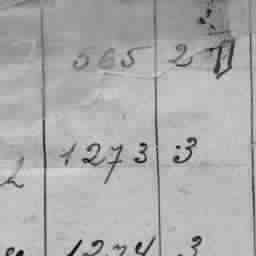 565 2
1273 3
1274 3